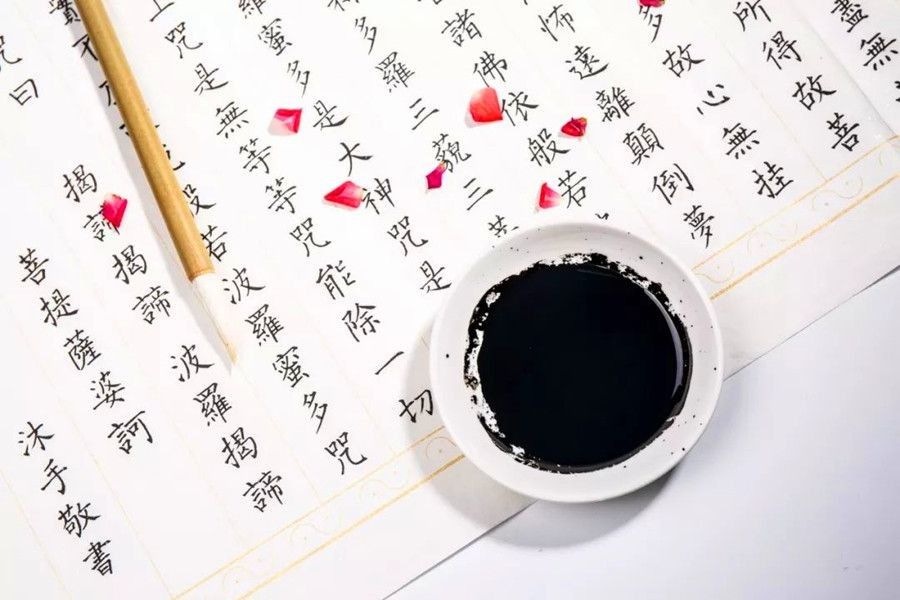 盡無
所得故菩
多故心無挂
怖遠離顛倒夢
諸佛依般若
多羅三藐三
羅蜜多是大神咒是
上咒是無等等咒能除一切
實不般若波羅蜜多咒
咒曰 揭諦揭諦波羅揭諦
菩提薩婆訶
沐手敬書